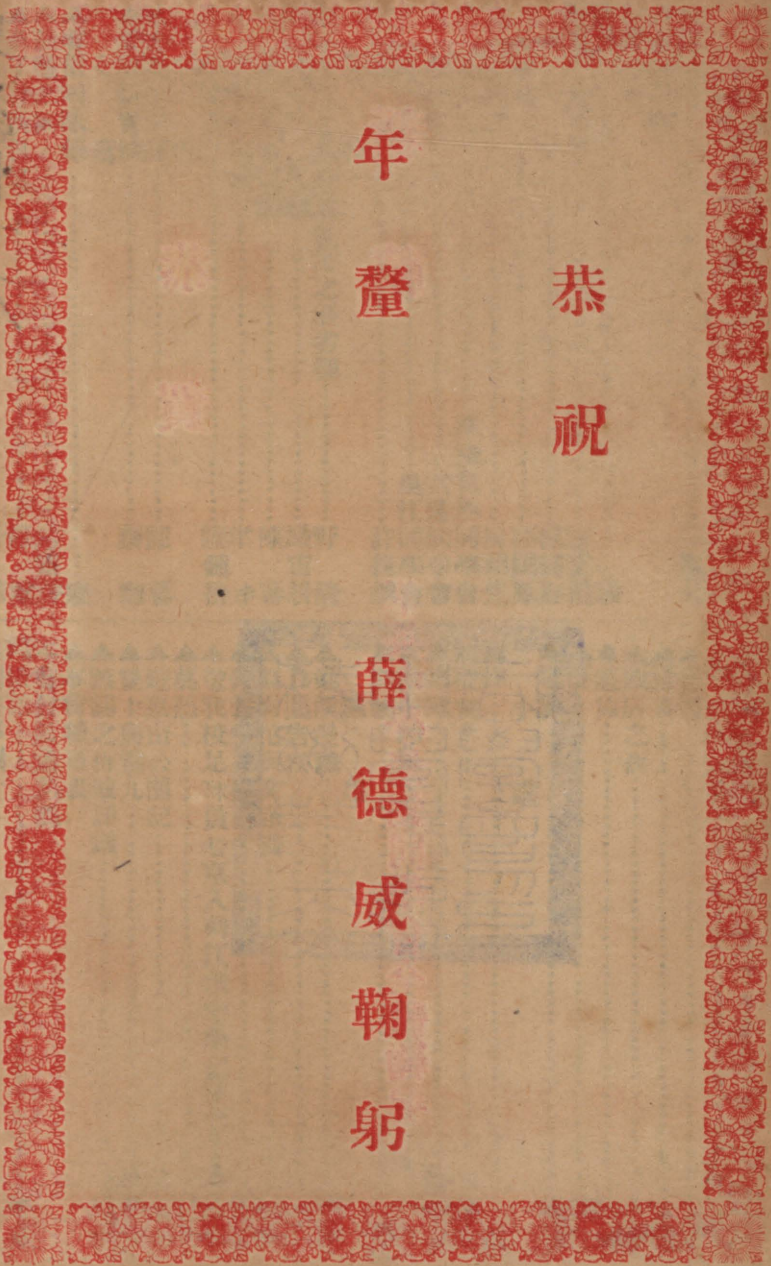 恭祝
年釐
薛德威鞠躬